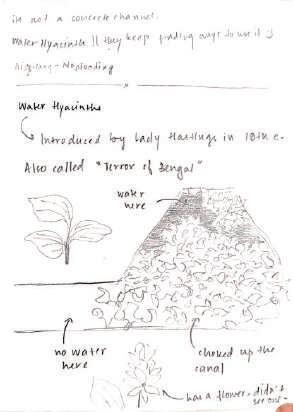 is not a concrete channel.
Water Hyacinth || they keep finding ways to use it
Water Hyacinths
Introduced by Lady Hastings in 18th c.
Also called "Terror of Bengal"
water
here
no water
here
choked up the
canal
has a flower - didn't
see one -